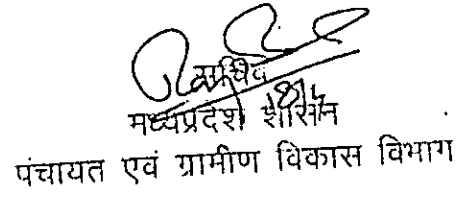 सचिव
मध्यप्रदेश शासन
पंचायत एवं ग्रामीण विकास विभाग